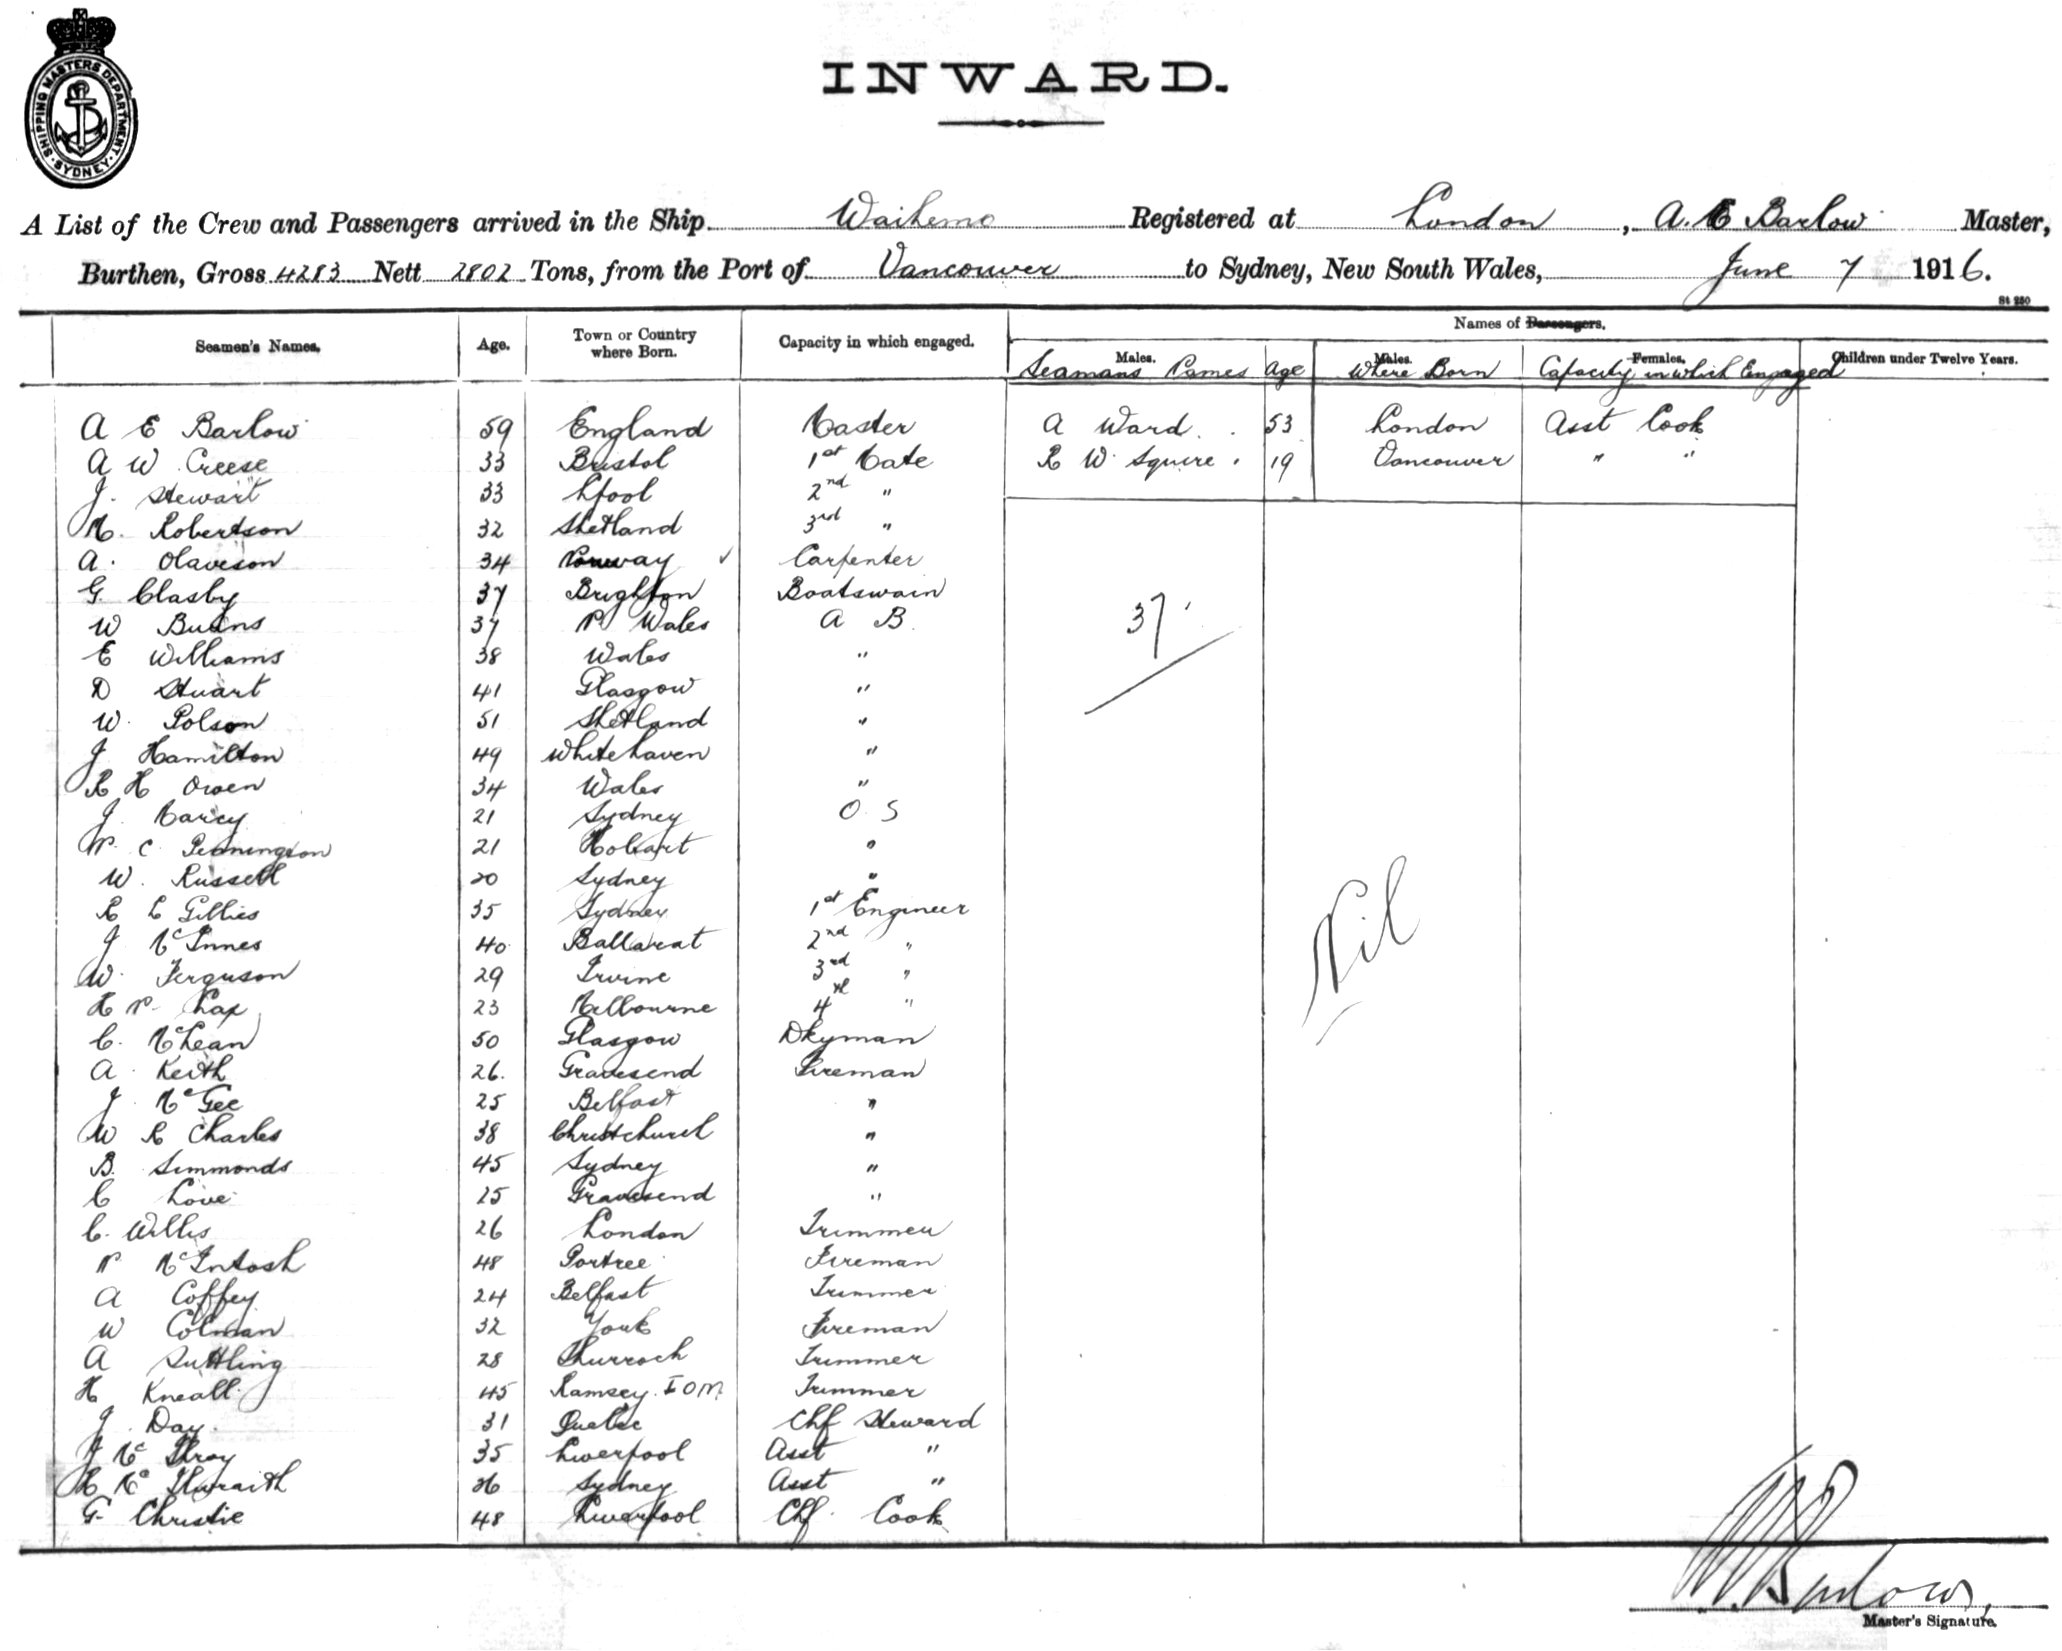 SHIPPING MASTERS DEPARTMENT. SYDNEY
INWARD.
A List of the Crew and Passengers arrived in the Ship Waihemo Registered at London, A. E Barlow Master,
Burthen, Gross 4283 Nett 2802 Tons, from the Port of Vancouver to Sydney, New South Wales, June 7 1916.
St 230
Seamen's Names. Age. Town or Country where Born. Capacity in which engaged. Names of Passengers.
Males. Males. Females. Children under Twelve Years.
Seamans Names Age Where Born Capacity in which Engaged
A E Barlow 59 England Master A Ward 53 London Asst Cook
A W Creese 33 Bristol 1st Mate R W Squire 19 Vancouver " "
J. Stewart 33 L'pool 2nd "
M. Robertson 32 Shetland 3rd "
A. Olaveson 34 Norway ✓ Carpenter
G. Clasby 37 Brighton Boatswain
W Burns 37 N Wales A B
E Williams 38 Wales "
D Stuart 41 Glasgow "
W. Polson 51 Shetland "
J Hamilton 49 Whitehaven "
R H Owen 34 Wales "
J. Marcy 21 Sydney O S
N. C. Pennington 21 Hobart "
W. Russell 20 Sydney "
R L Gillies 35 Sydney 1st Engineer
J McInnes 40 Ballarat 2nd "
W. Ferguson 29 Irvine 3rd "
H N Lax 23 Melbourne 4th "
C. McLean 50 Glasgow Dkyman
A. Keith 26. Gravesend Fireman
J. McGee 25 Belfast "
W R Charles 38 Christchurch "
B. Simmonds 45 Sydney "
C Love 25 Gravesend "
C. Willis 26 London Trimmer
N McIntosh 48 Portree Fireman
A Coffey 24 Belfast Trimmer
W Colman 32 York Fireman
A Suttling 28 Thurrock Trimmer
H Kneall 45 Ramsey. I O M Trimmer
J. Day. 31 Quebec Chf Steward
J McIlroy 35 Liverpool Asst "
R McIlwraith 26 Sydney Asst "
G. Christie 48 Liverpool Chf. Cook
37
Nil
Barlow
Master's Signature.